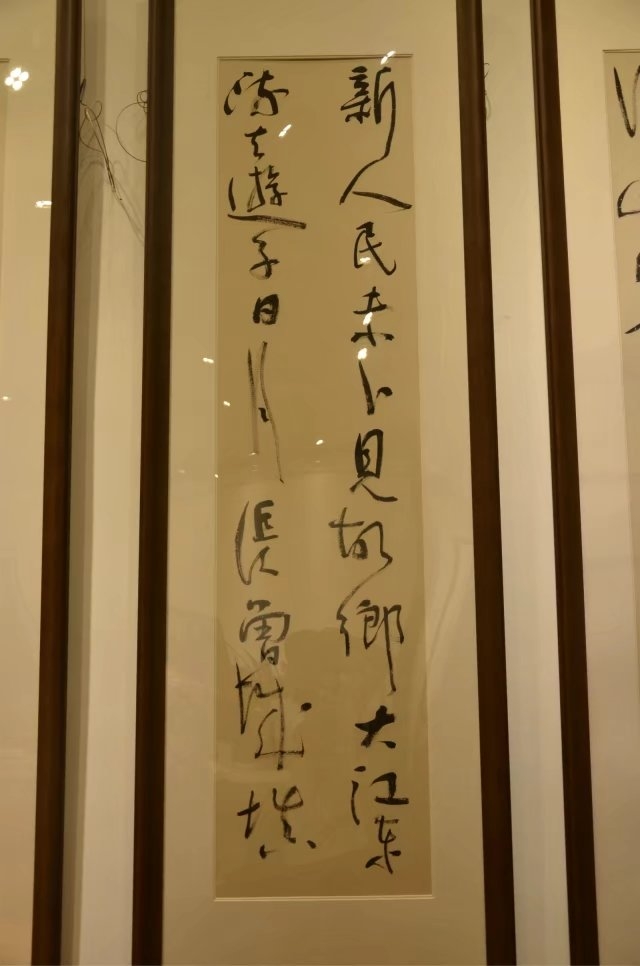 新人民未卜見故鄉大江東
流去遊子日月長曾城填